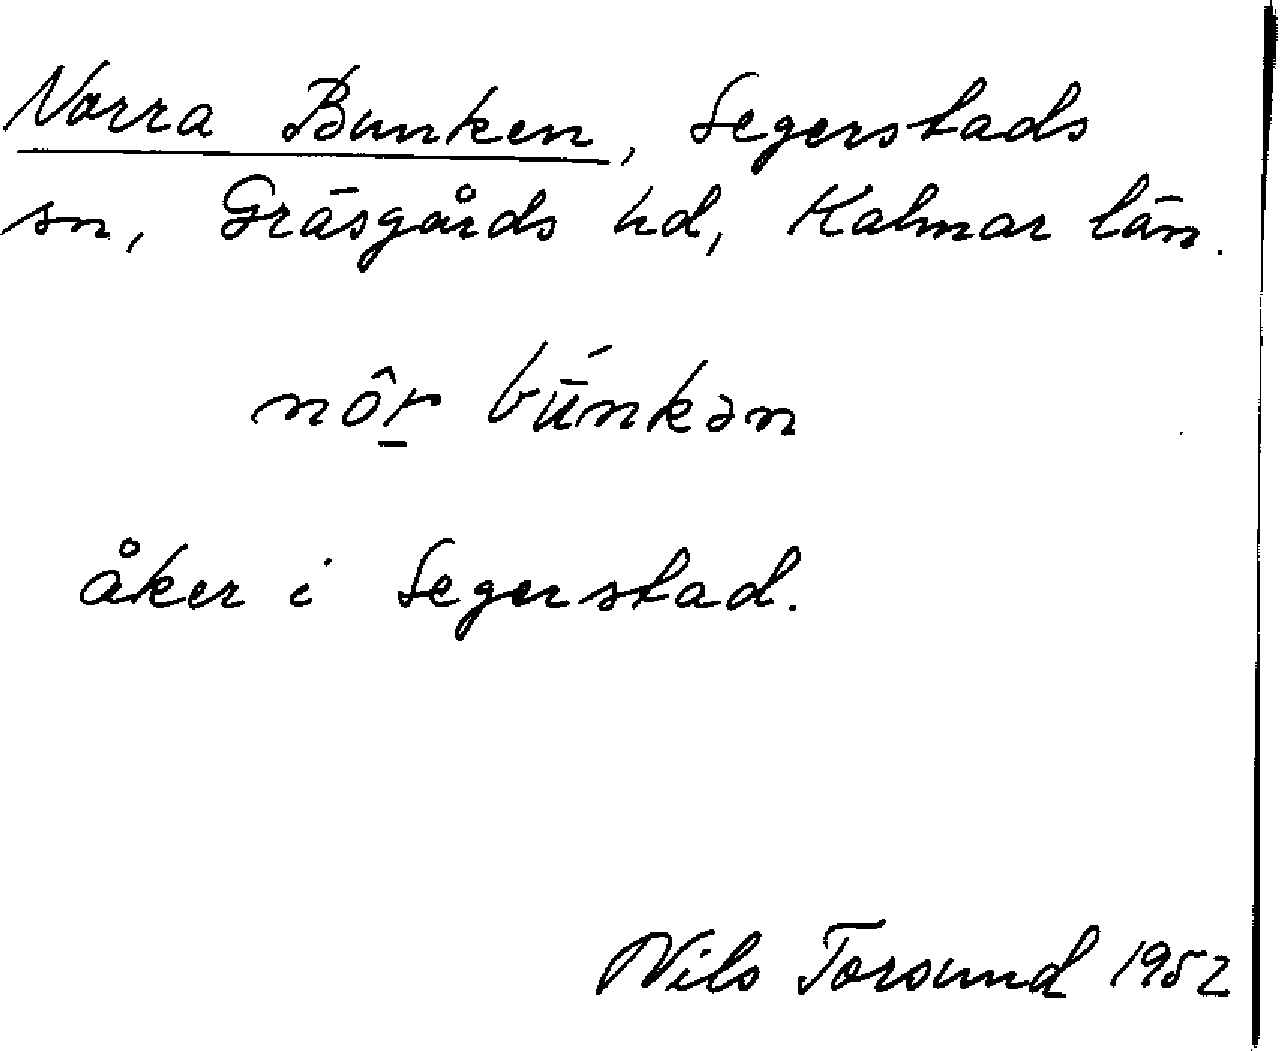 Norra Bunken, Segerstads
sn, Gräsgårds hd, Kalmar län.
nôr̲ bū́nkən
åker i Segerstad.
Nils Torsund 1952